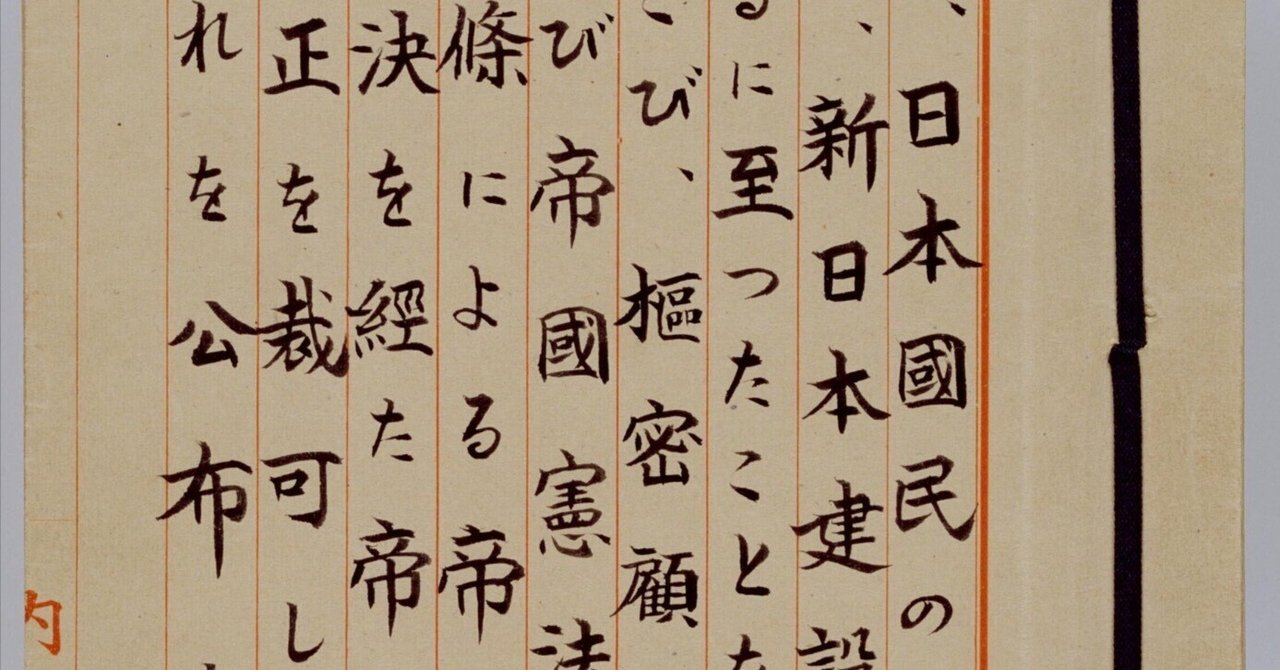 、日本國民の
、新日本建設
るに至つたことを
こび、樞密顧
び帝國憲法
條による帝
決を經た帝
正を裁可し
れを公布
内